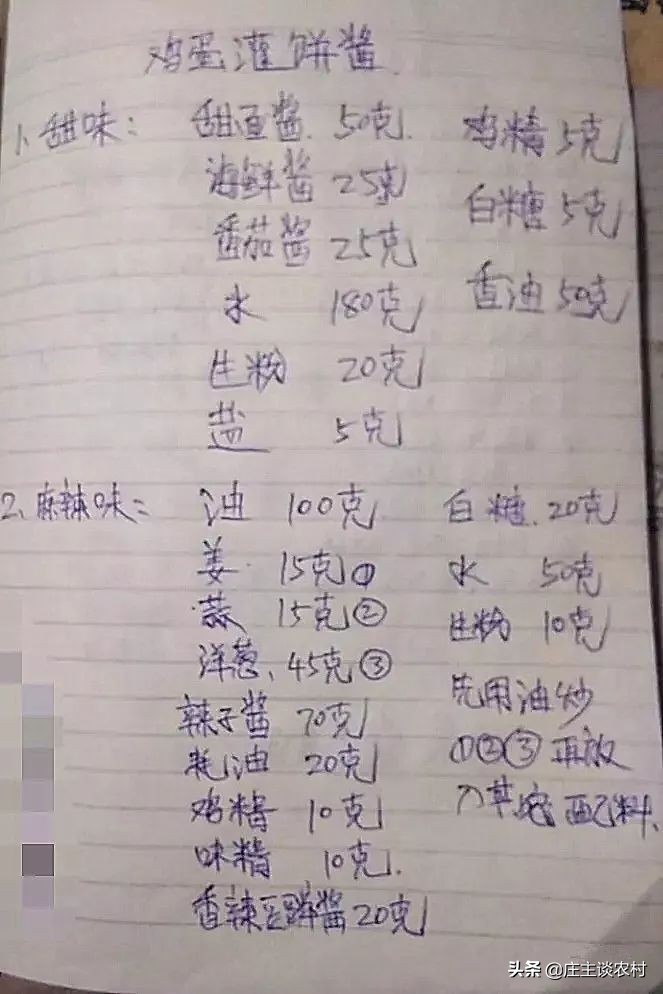 鸡蛋灌饼酱
1、甜味：
甜面酱 50克
海鲜酱 25克
番茄酱 25克
水 180克
生粉 20克
盐 5克
鸡精 5克
白糖 5克
香油 50克
2、麻辣味：
油 100克
姜 15克①
蒜 15克②
洋葱、45克③
辣子酱 70克
耗油 20克
鸡精 10克
味精 10克
香辣豆瓣酱 20克
白糖 20克
水 50克
生粉 10克
先用油炒
①②③再放
入其它配料
头条 @庄主谈农村